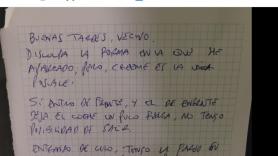 BUENAS TARDES, VECINO.
DISCULPA LA FORMA EN LA QUE HE
APARCADO, PERO, CREEME ES LA UNICA
POSIBLE.
SI ENTRO DE FRENTE, Y EL DE ENFRENTE
DEJA EL COCHE UN POCO FUERA, NO TENGO
POSIBILIDAD DE SALIR.
ENTRANDO DE CULO, TENGO LA PARED EN